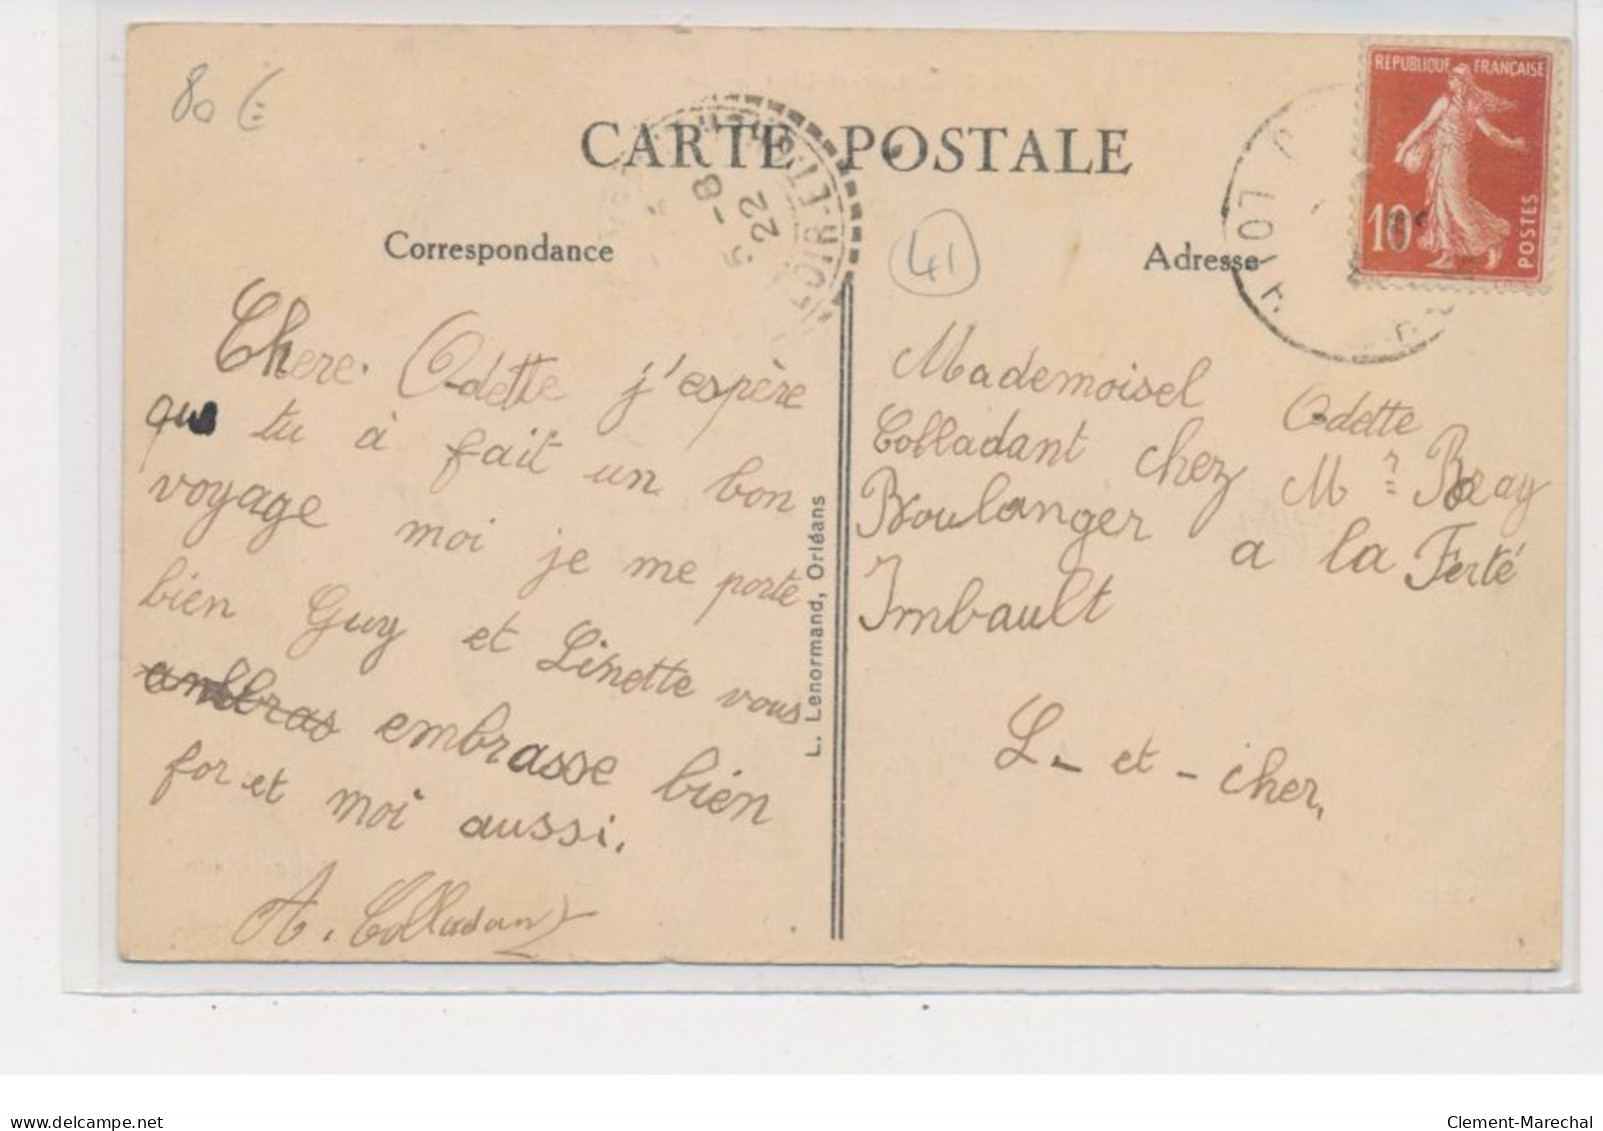 80 €
CARTE POSTALE
RÉPUBLIQUE FRANÇAISE
10c
POSTES
5-8
22
LOIR-ET-
Correspondance
41
Adresse
Chere Odette j'espère
que tu à fait un bon
voyage moi je me porte
bien Guy et Linette vous
embrasse bien
for et moi aussi.
A. Colladant
L. Lenormand, Orléans
Mademoisel Odette
Colladant chez Mr Beay
Boulanger a la Ferté
Imbault
L-et-cher,
www.delcampe.net
Clement-Marechal